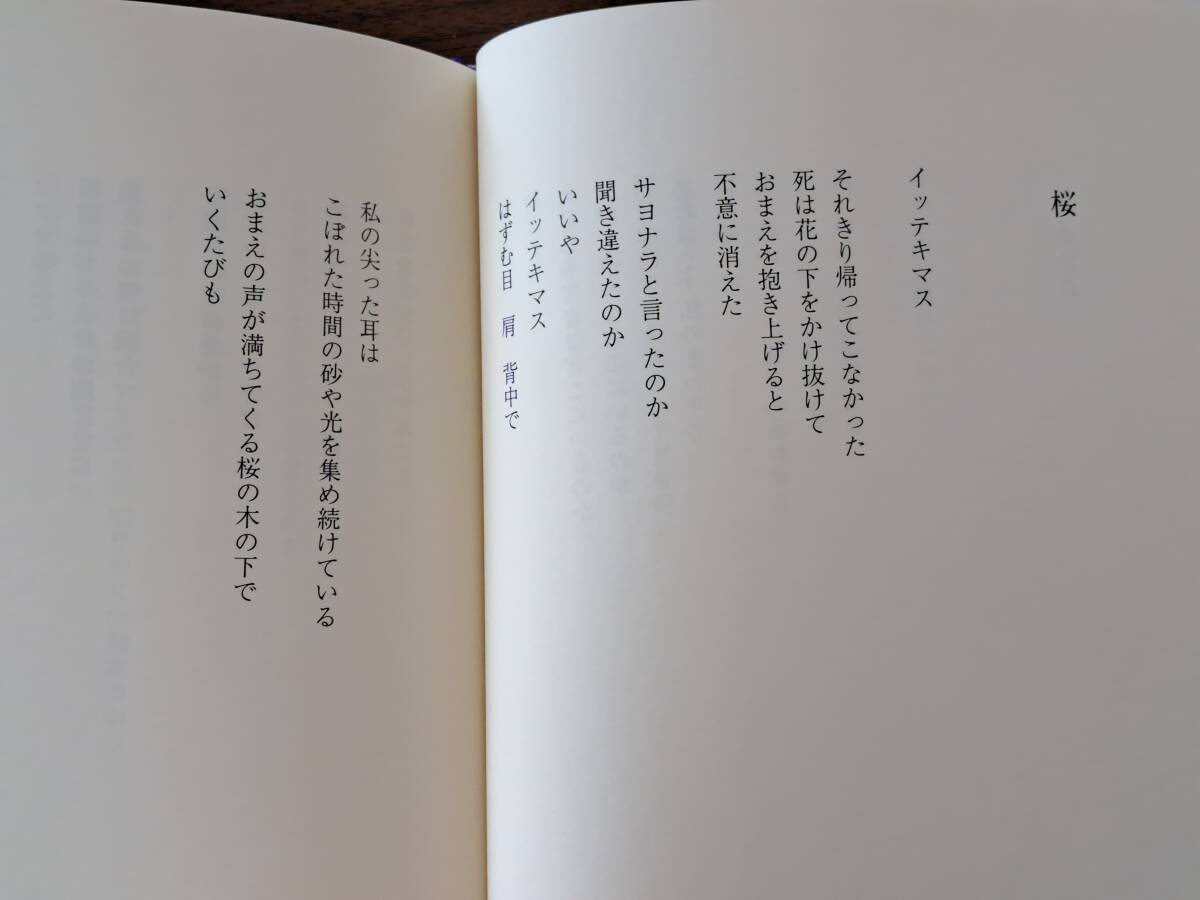 桜
イッテキマス
それきり帰ってこなかった
死は花の下をかけ抜けて
おまえを抱き上げると
不意に消えた
サヨナラと言ったのか
聞き違えたのか
いいや
イッテキマス
はずむ目　肩　背中で
私の尖った耳は
こぼれた時間の砂や光を集め続けている
おまえの声が満ちてくる桜の木の下で
いくたびも